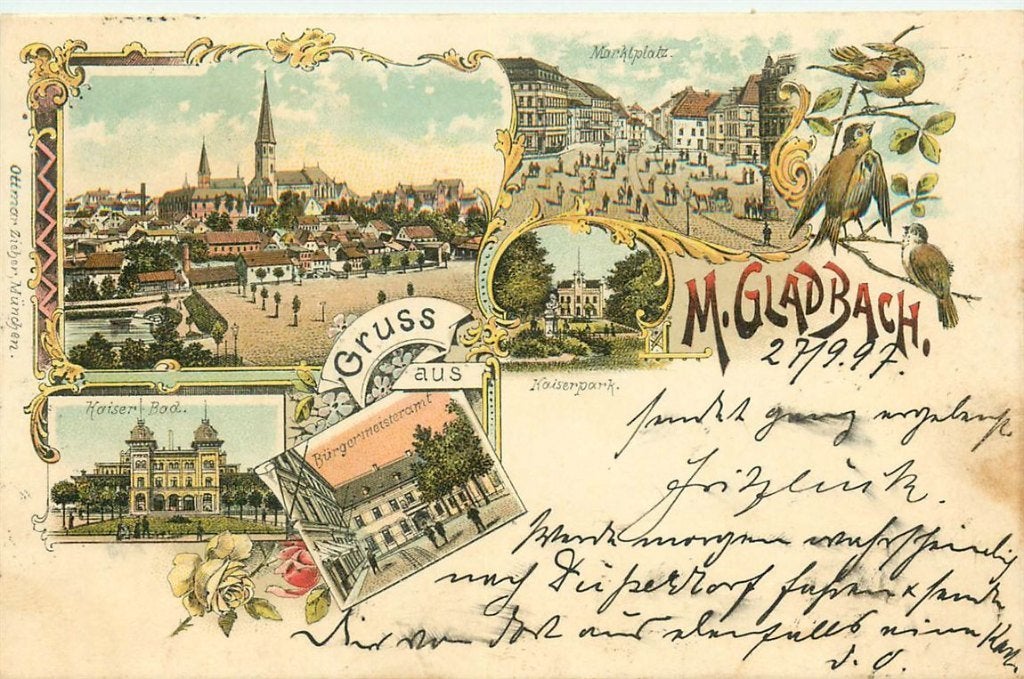 Marktplatz.
Ottmar Zieher München.
Gruss
aus
M. GLADBACH.
27/9.97.
Kaiserpark.
Kaiser Bad.
Bürgermeisteramt
sendet ganz ergebenst
Fritz
Werde morgen wahrscheinlich
nach Düsseldorf fahren & sende
Dir von dort aus ebenfalls eine Karte
d. O.